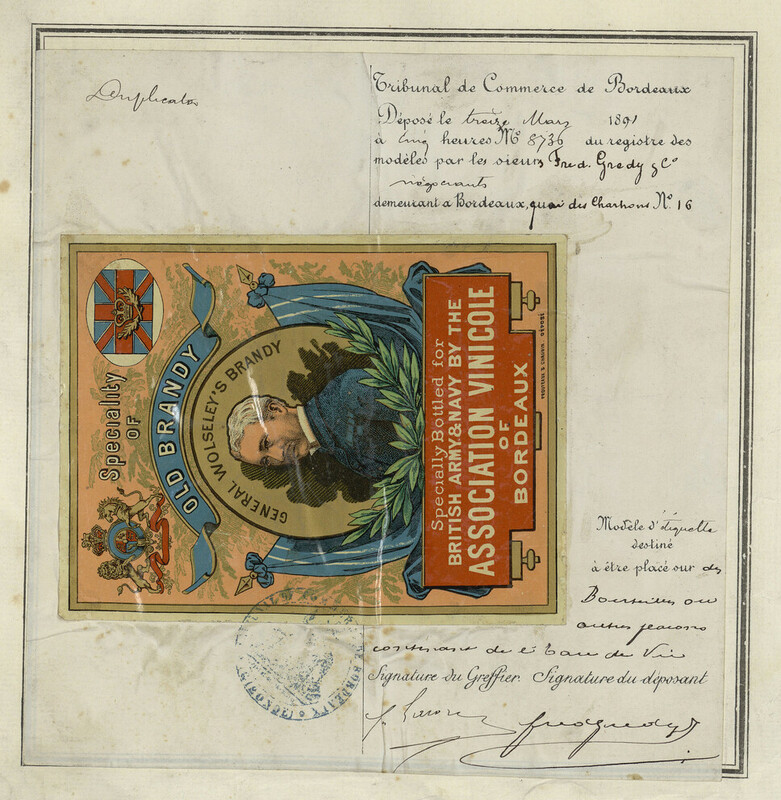 Duplicata
Tribunal de Commerce de Bordeaux
Déposé le treize Mars 1891
à cinq heures No 8736 du registre des
modèles par les sieurs Fred. Gredy & Co
négociants
demeurant a Bordeaux, quai des Chartrons No. 16
Speciality
OF
OLD BRANDY
GENERAL WOLSELEY'S BRANDY
Specially Bottled for
BRITISH ARMY & NAVY BY THE
ASSOCIATION VINICOLE
OF
BORDEAUX
DÉPOSÉ
Modèle d'étiquette
destiné
à être placé sur des
Bouteilles ou
autres flacons
contenant de l'Eau de Vie
Signature du Greffier. Signature du déposant
DE BORDEAUX